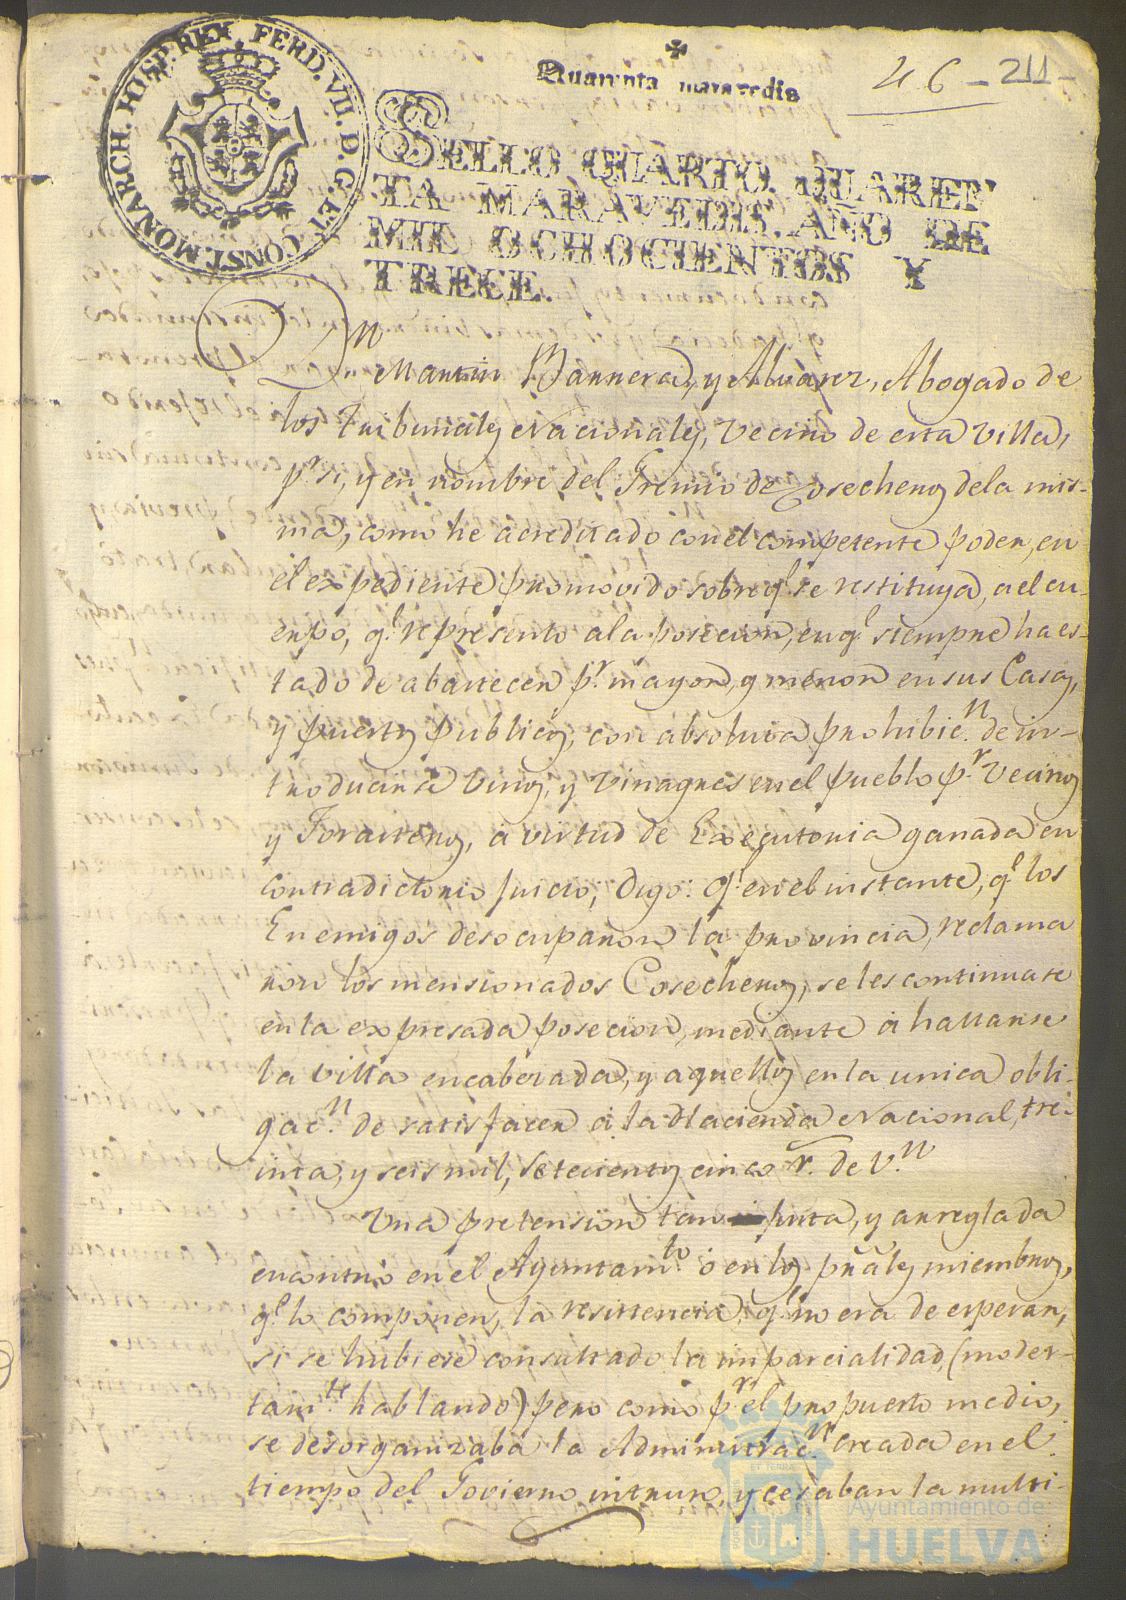 Quarenta maravedis
46 - 211 -
FERD. VII. D. G. ET CONST. MONARCH. HISP. REX.
SELLO QUARTO. QUAREN
TA MARAVEDIS. AÑO DE
MIL OCHOCIENTOS Y
TRECE.
Dn Martin Barrera, y Alvarez, Abogado de
los Tribunales Nacionales, vecino de esta villa,
pr. si, y en nombre del Gremio de Cosecheros de la mis-
ma, como he acreditado con el competente poder, en
el expediente promovido sobre q.e se restituya, a el cu-
erpo, q.e represento a la posecion, en q.e siempre ha es-
tado de abastecer p.r mayor, y menor en sus Casas,
y puestos publicos, con absoluta prohibic.n de in-
troducirse vinos, y vinagres en el pueblo p.r vecinos
y Forasteros, á virtud de Executoria ganada en
contradictorio juicio, Digo: q.e en el instante, q.e los
Enemigos desocuparon la provincia, reclama
ron los mensionados Cosecheros, se les continuase
en la expresada posecion, mediante á hallarse
la villa encabezada, y aquellos en la unica obli-
gac.n de satisfacer á la Hacienda Nacional, tre-
inta, y seis mil, setecientos cinco r.s de v.n
Una pretension tan justa, y arreglada
encontró en el Ayuntam.to ó en los pñales miembros,
q.e lo componen, la resistencia, q.e no era de esperar,
si se hubiese consultado la imparcialidad, (modes-
tam.te hablando) pero como p.r el propuesto medio,
se desorganizaba la Administrac.n creada en el
tiempo del Govierno intruso, y cesaban la multi-
Ayuntamiento de
HUELVA